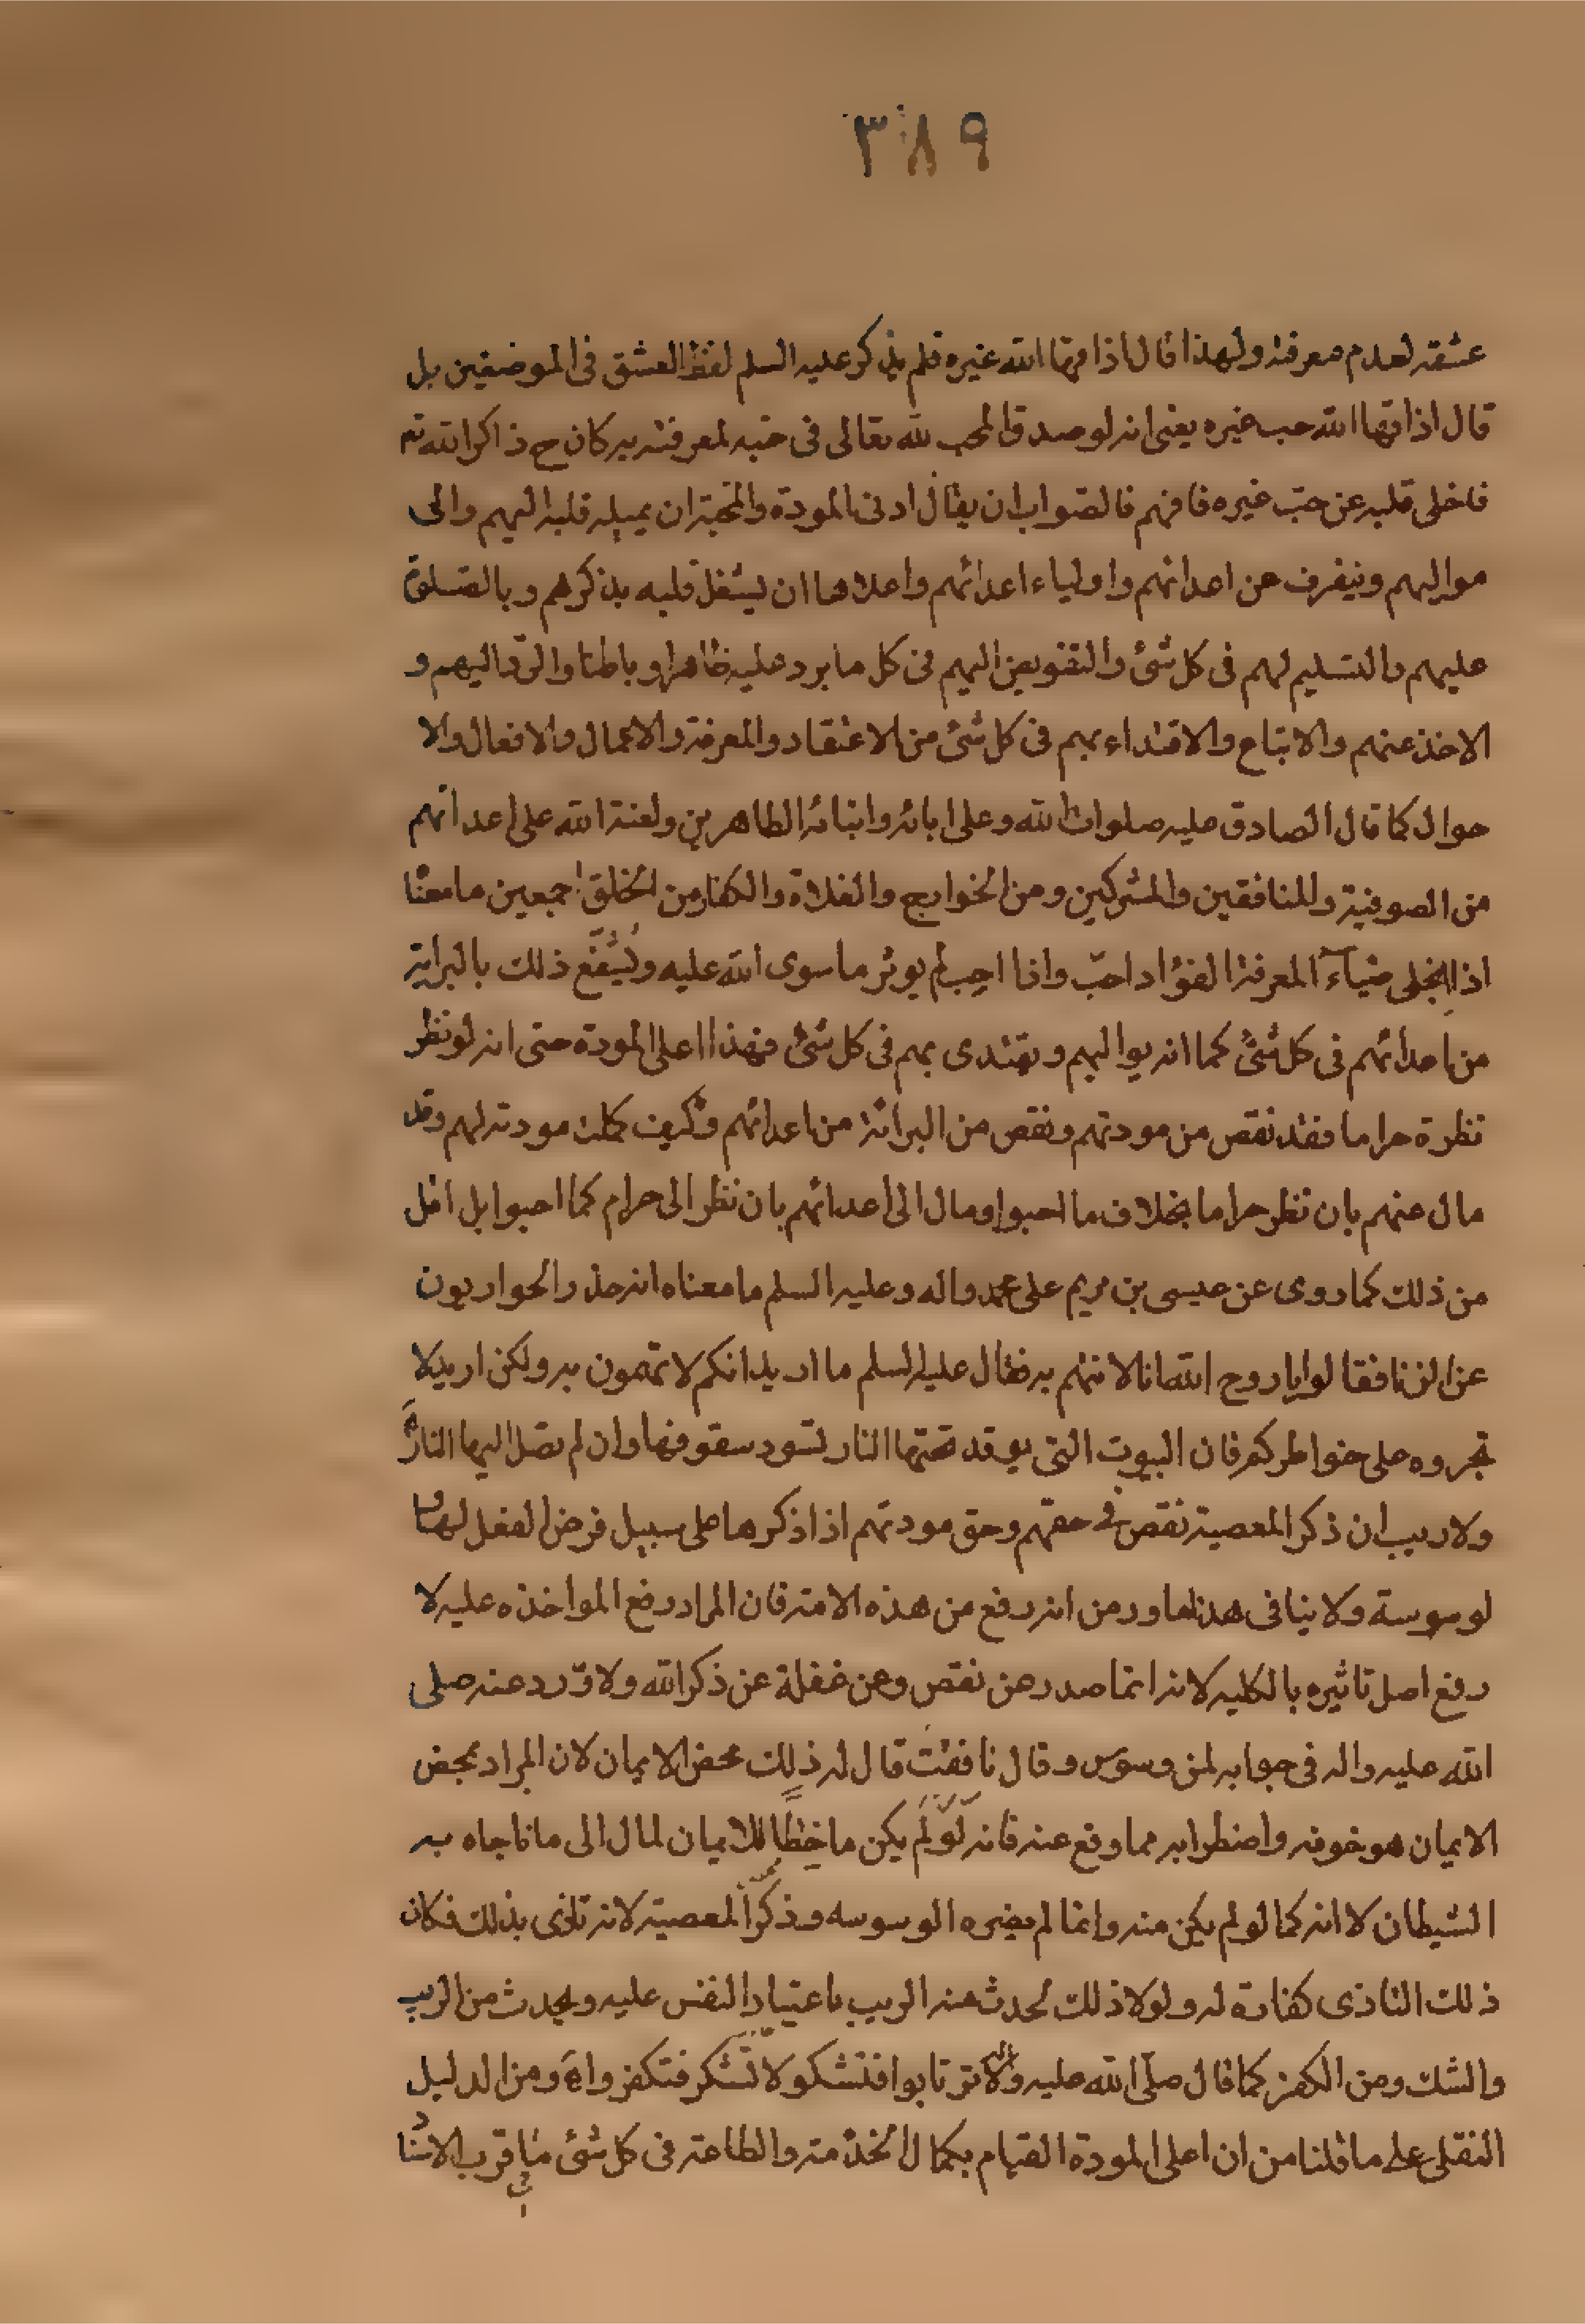 ٣٨٩
عشقه لعدم معرفته ولهذا قال اذاقها الله غيره فلم يذكر عليه السلم لفظ العشق في الموضعين بل
قال اذاقها الله حب غيره يعنى انه لو صدق المحب لله تعالى في حبه لمعرفته به كان ح ذاكرا لله تع
فاخلى قلبه عن حبّ غيره فافهم فالصواب ان يقال ادنى المودة والمحبة ان يميله قلبه اليهم والى
مواليهم وينفرف عن اعدائهم واولياء اعدائهم واعلاها ان يشغل قلبه بذكرهم وبالصلوة
عليهم والتسليم لهم في كل شئ والتفويض اليهم في كل ما يرد عليه ظاهرا وباطنا والردّ اليهم و
الاخذ عنهم والاتباع والاقتداء بهم في كل شئ من الاعتقاد والمعرفة والاعمال والافعال والا
حوال كما قال الصادق عليه صلوات الله وعلى ابائه وابنائه الطاهرين ولعنة الله على اعدائهم
من الصوفية والمنافقين والمشركين ومن الخوارج والغلاة والكفار من الخلق اجمعين ما معناه
اذا انجلى ضياء المعرفة الفؤاد احبّ واذا احب لم يوثر ما سوى الله عليه ويشفع ذلك بالبرائة
من اعدائهم في كل شئ كما انه يواليهم ويقتدى بهم في كل شئ فهذا اعلى المودة حتى انه لو نظر
نظرة حراما فقد نقص من مودتهم ونقص من البرائة من اعدائهم وكيف كملت مودته لهم وقد
مال عنهم بان نظر حراما بخلاف ما احبوا ومال الى اعدائهم بان نظر الى حرام كما احبوا بل اقل
من ذلك كما روى عن عيسى بن مريم على محمد واله وعليه السلم ما معناه انه حذر الحواريون
عن الزنا فقالوا يا روح الله انا لا نهم به فقال عليه السلم ما اريد انكم لا تهمون به ولكن اريد لا
تجروه على خواطركم فان البيوت التى يوقد تحتها النار تسود سقوفها وان لم تصل اليها النار
ولا ريب ان ذكر المعصية نقص في حقهم وحق مودتهم اذا ذكرها على سبيل فرض الفعل لها وا
لوسوسة ولا ينافى هذا ما ورد من انه رفع من هذه الامة فان المراد رفع المواخذه عليه لا
رفع اصل تاثيره بالكليه لانه انما صدر عن نقص وعن غفلة عن ذكر الله ولا ورد عنه صلى
الله عليه واله في جوابه لمن وسوس وقال نافقت قال له ذلك محض الايمان لان المراد بمحض
الايمان هو خوفه واضطرابه مما وقع عنه فانه لو لم يكن ماحضا للايمان لمال الى ما ناجاه به
الشيطان لا انه كما لو لم يكن منه وانما لم يضره الوسوسه وذكر المعصية لانه تاذى بذلك فكان
ذلك التاذى كفارة له ولولا ذلك لحدث منه الريب باعتياد النفس عليه ويحدث من الريب
والشك ومن الكفر كما قال صلّى الله عليه واله لا ترتابوا فتشكوا ولا تشكوا فتكفروا ه ومن الدليل
النقلى على ما قلنا من ان اعلى المودة القيام بكمال الخدمة والطاعة في كل شئ